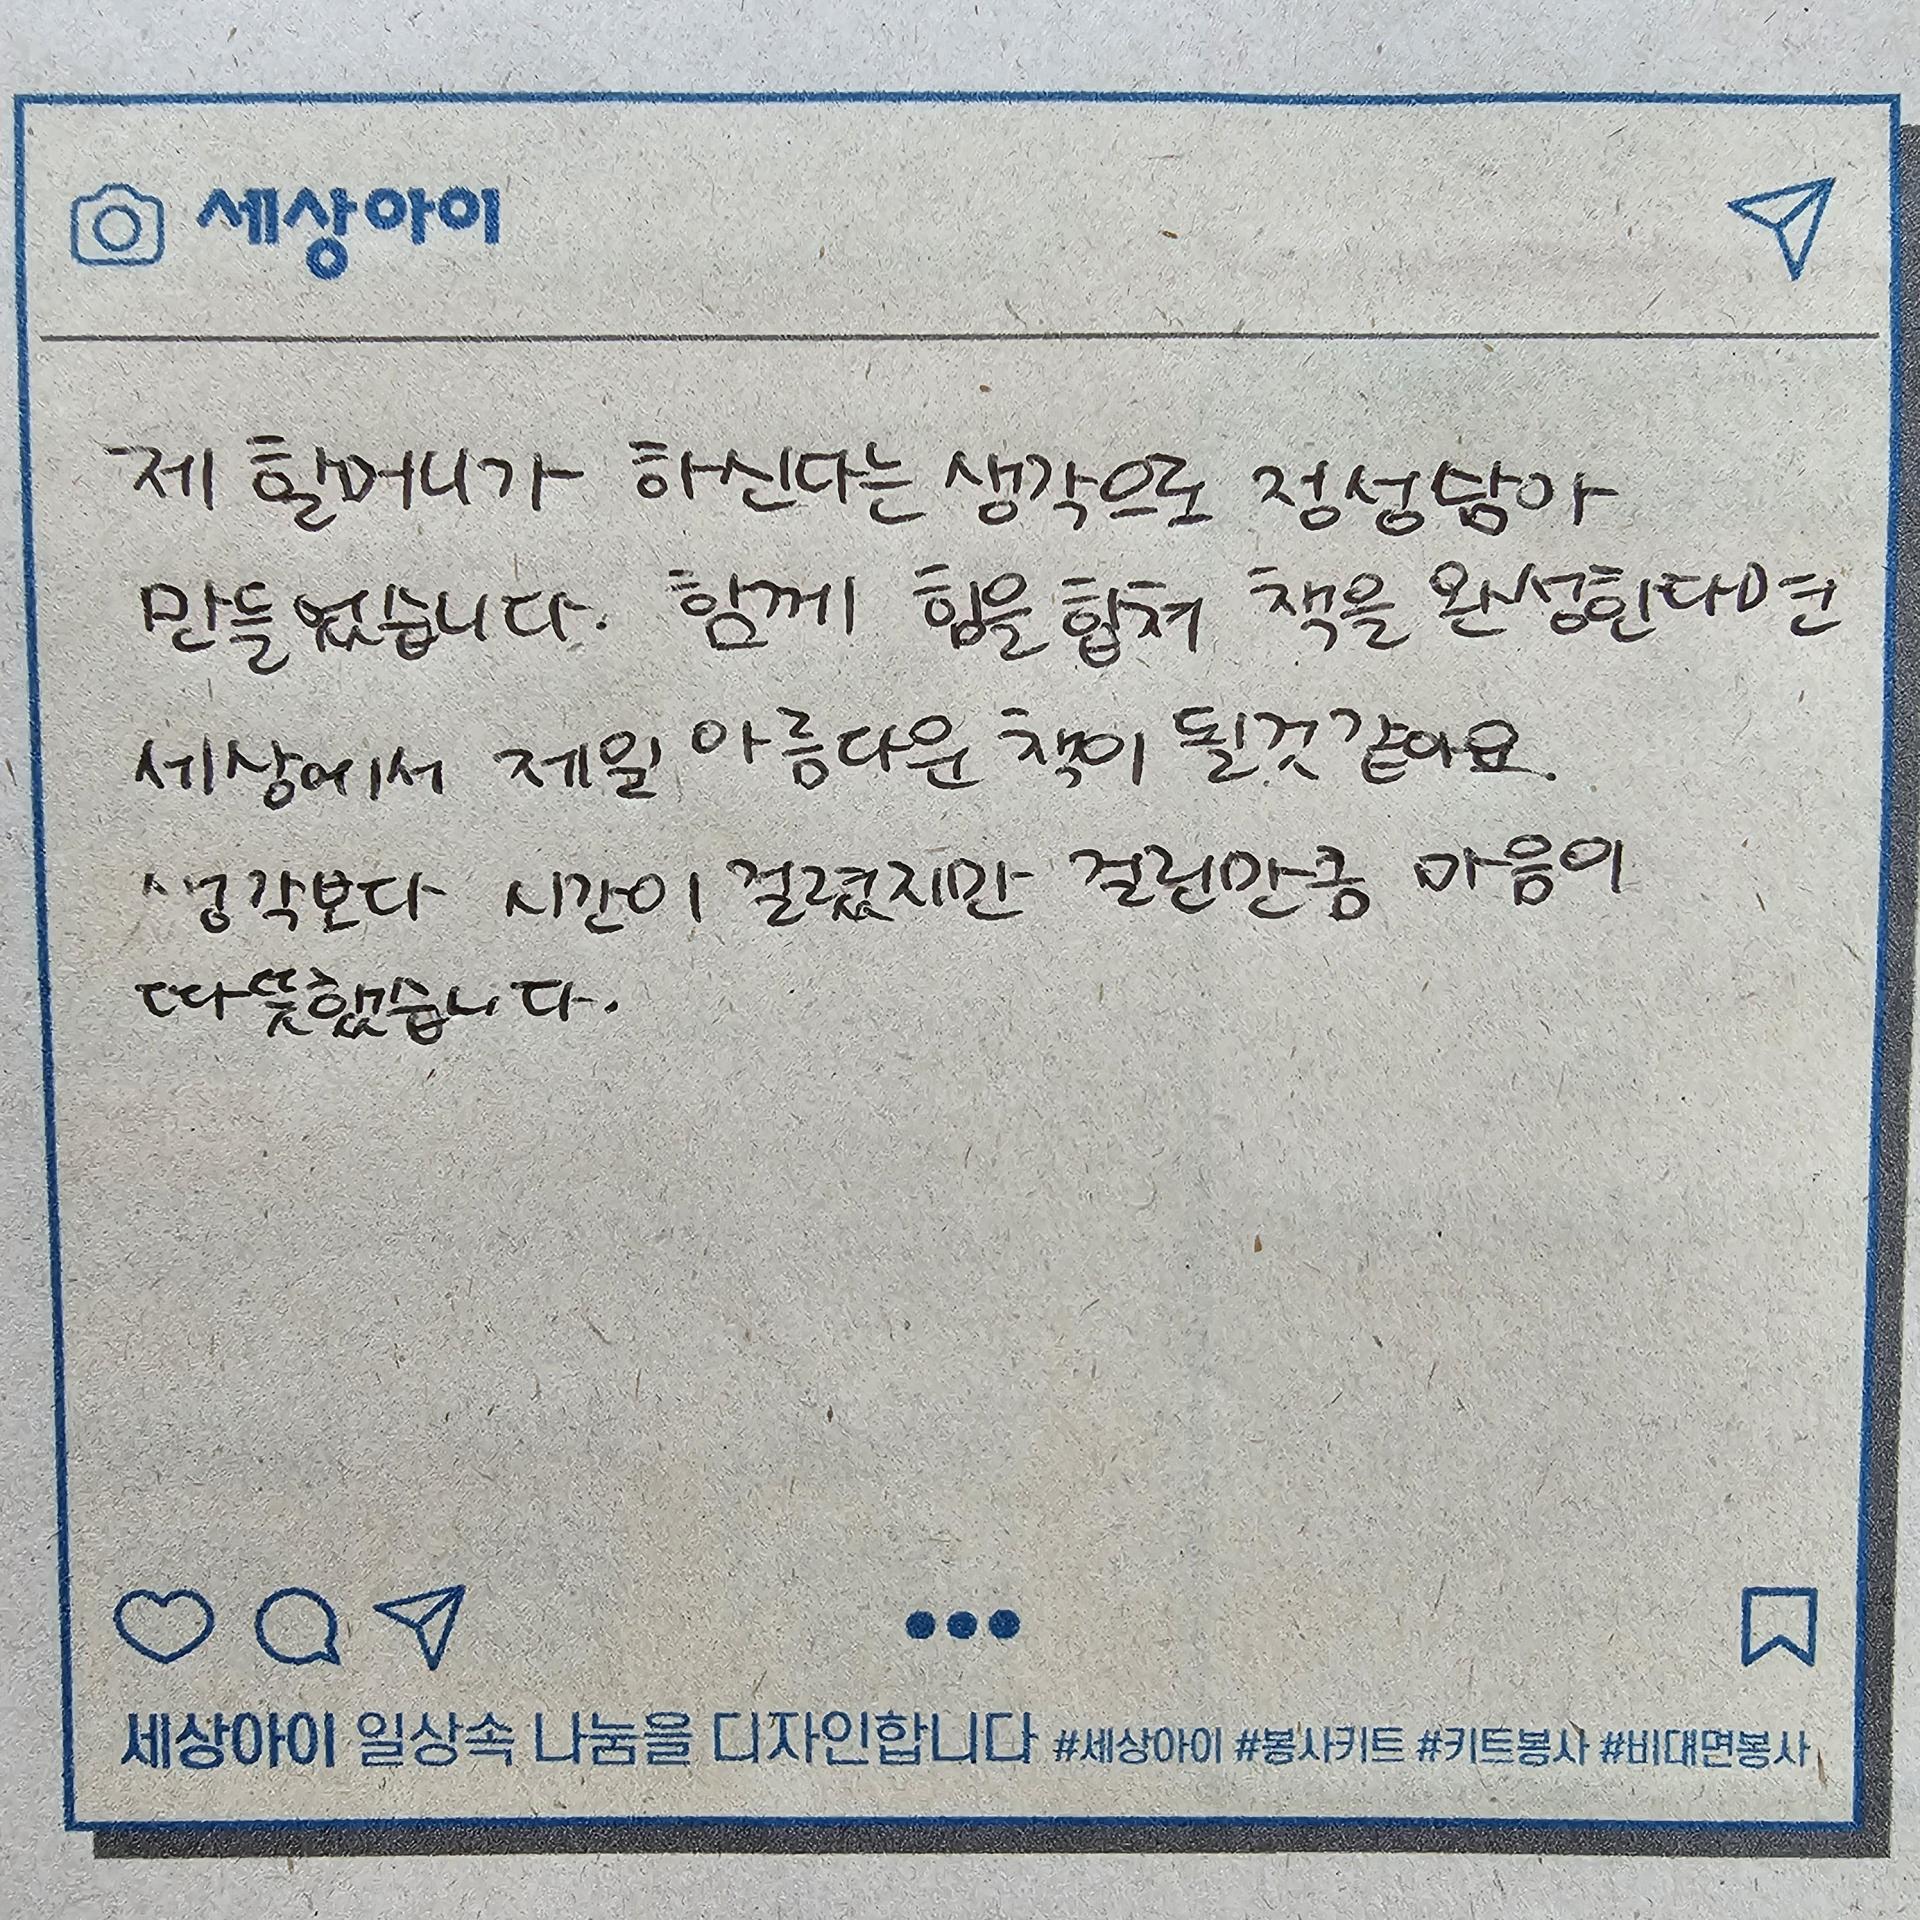 세상아이
제 할머니가 하신다는 생각으로 정성담아
만들었습니다. 함께 힘을 합쳐 책을 완성한다면
세상에서 제일 아름다운 책이 될것 같아요.
생각보다 시간이 걸렸지만 걸린만큼 마음이
따뜻했습니다.
세상아이 일상속 나눔을 디자인합니다 #세상아이 #봉사키트 #키트봉사 #비대면봉사